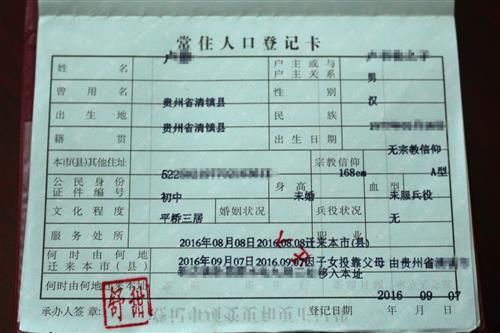 常住人口登记卡
姓名 卢 户主或与户主关系
曾用名 性别 男
出生地 贵州省清镇县 民族 汉
籍贯 贵州省清镇县 出生日期
本市(县)其他住址 宗教信仰 无宗教信仰
公民身份证件编号 522 身高 168cm 血型 A型
文化程度 初中 婚姻状况 未婚 兵役状况 未服兵役
服务处所 平桥三居 职业 无
何时由何地迁来本市(县) 2016年08月08日2016.08.08迁来本市(县)
何时由何地迁来本址 2016年09月07日2016.09.07因子女投靠父母 由贵州省清
移入本址
承办人签章: 舒甜 登记日期: 2016年09月07日